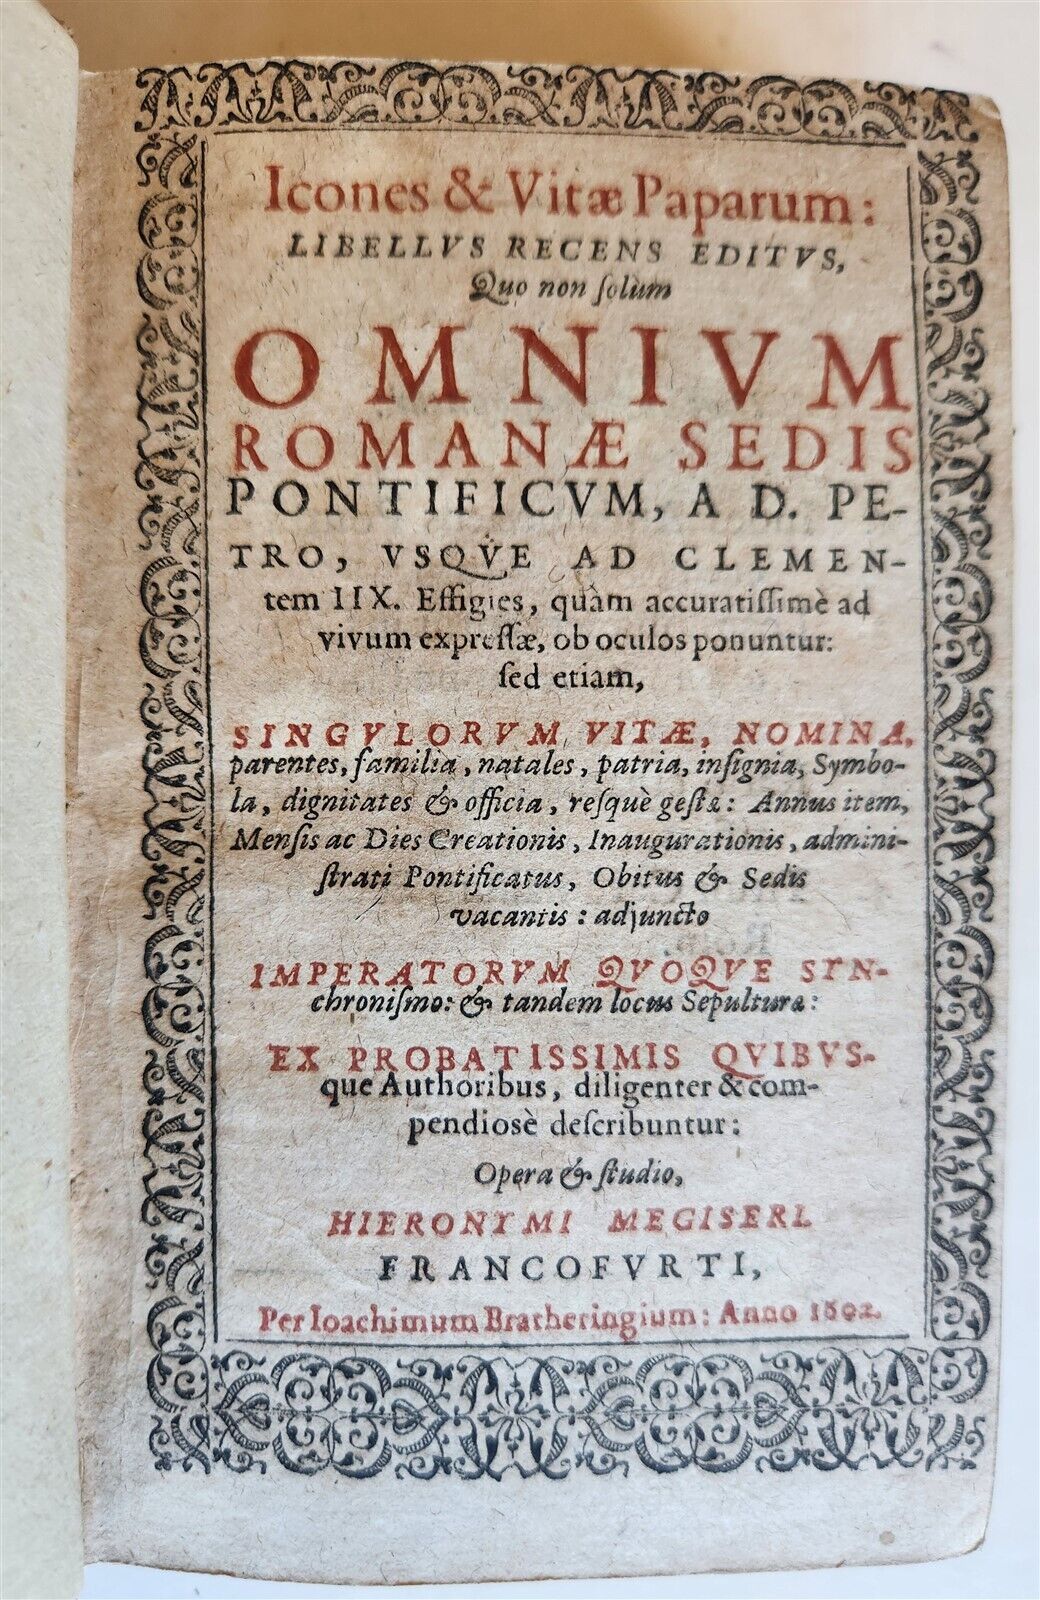 Icones & Vitæ Paparum:
LIBELLVS RECENS EDITVS,
Quo non ſolùm
OMNIVM
ROMANÆ SEDIS
PONTIFICVM, A D. PE-
TRO, VSQVE AD CLEMEN-
tem IIX. Effigies, quàm accuratiſſimè ad
vivum expreſſæ, ob oculos ponuntur:
ſed etiam,
SINGVLORVM VITÆ, NOMINA,
parentes, familia, natales, patria, inſignia, Symbo-
la, dignitates & officia, reſquè geſtæ: Annus item,
Menſis ac Dies Creationis, Inaugurationis, admini-
ſtrati Pontificatus, Obitus & Sedis
vacantis: adjuncto
IMPERATORVM QVOQVE SYN-
chroniſmo: & tandem locus Sepulturæ:
EX PROBATISSIMIS QVIBVS-
que Authoribus, diligenter & com-
pendiosè deſcribuntur:
Opera & ſtudio,
HIERONYMI MEGISERI.
FRANCOFVRTI,
Per Ioachimum Bratheringium: Anno 1602.